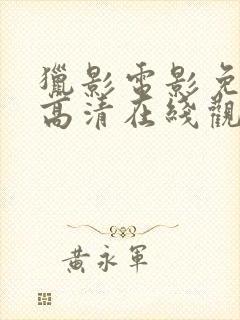 獵影電影免
高清在綫觀
黃永軍